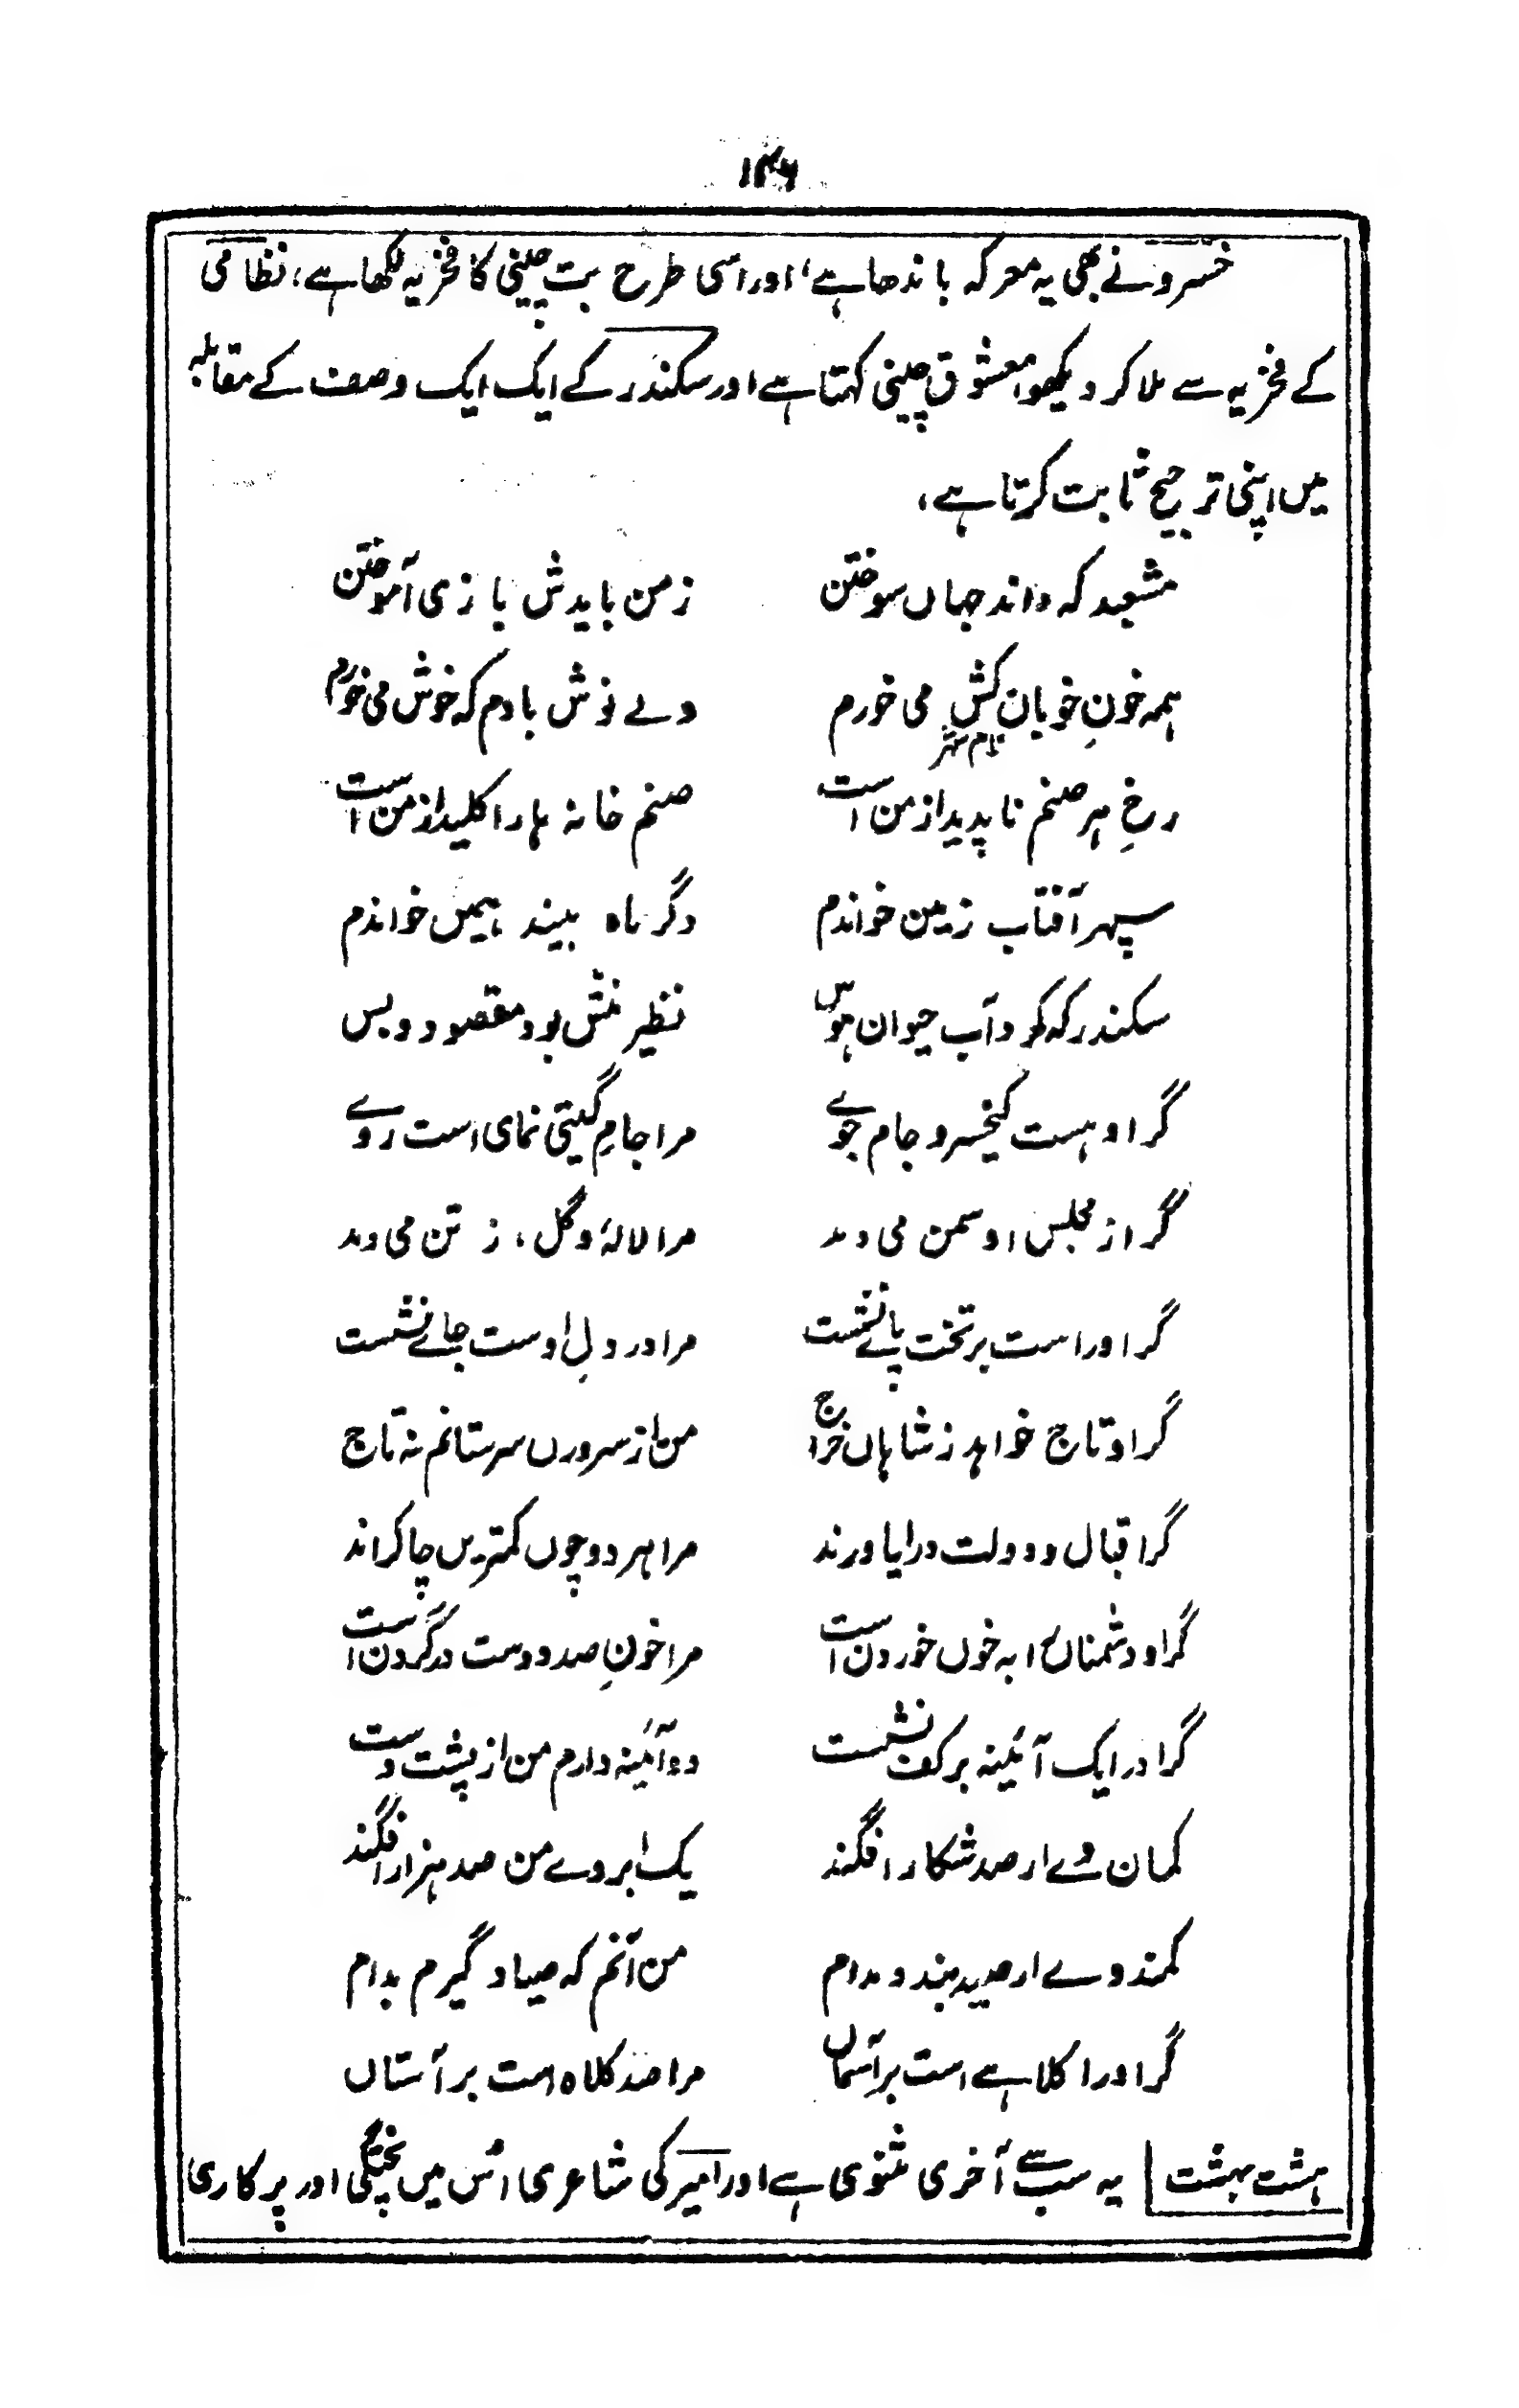 ۱۳۶
خسرو نے بھی یہ معرکہ باندھا ہے، اور اسی طرح بت چینی کا فخریہ لکھا ہے، نظامی
کے فخریہ سے ملا کر دیکھو، معشوق چینی کہتا ہے اور سکندر کے ایک ایک وصف کے مقابلہ
میں اپنی ترجیح ثابت کرتا ہے،
مشعبد کہ داند جہاں سوختن زمن بایدش بازی آموختن
ہمہ خونِ خوبان کش می خورم ولے نوش بادم کہ خوش می خورم
نام شہر
رخِ ہر صنم ناپدید از من است صنم خانہ ہا را کلید از من است
سپہر آفتاب زمین خواندم دگر ماہ بیند ہمیں خواندم
سکندر کہ کرد آب حیوان ہوس نظیر منش بود مقصود و بس
گر او ہست کیخسرو جام جوے مرا جامِ گیتی نمای است روے
گر از مجلس او سمن می دمد مرا لالۂ و گل، ز تن می دمد
گر او راست بر تخت پائے نشست مرا در دلِ اوست جائے نشست
گر او تاج خواہد ز شاہاں خراج من از سروراں سر ستانم نہ تاج
گر اقبال و دولت در ایا ورند مرا ہر دو چوں کمتریں چاکر اند
گر او دشمناں را بہ خوں خوردن است مرا خونِ صد دوست در گردن است
گر ادر ایک آئینہ بر کف نشست دو آئینہ دارم من از پشت دست
کمان وے ار صد شکار افگند یک ابروے من صد ہزار افگند
کمند وے ار صید بندد مدام من آنم کہ صیاد گیرم بدام
گر اورا کلاہے است بر آسماں مرا صد کلاہ است بر آستاں
ہشت بہشت یہ سب سے آخری مثنوی ہے اور امیر کی شاعری اُس میں پختگی اور پرکاری